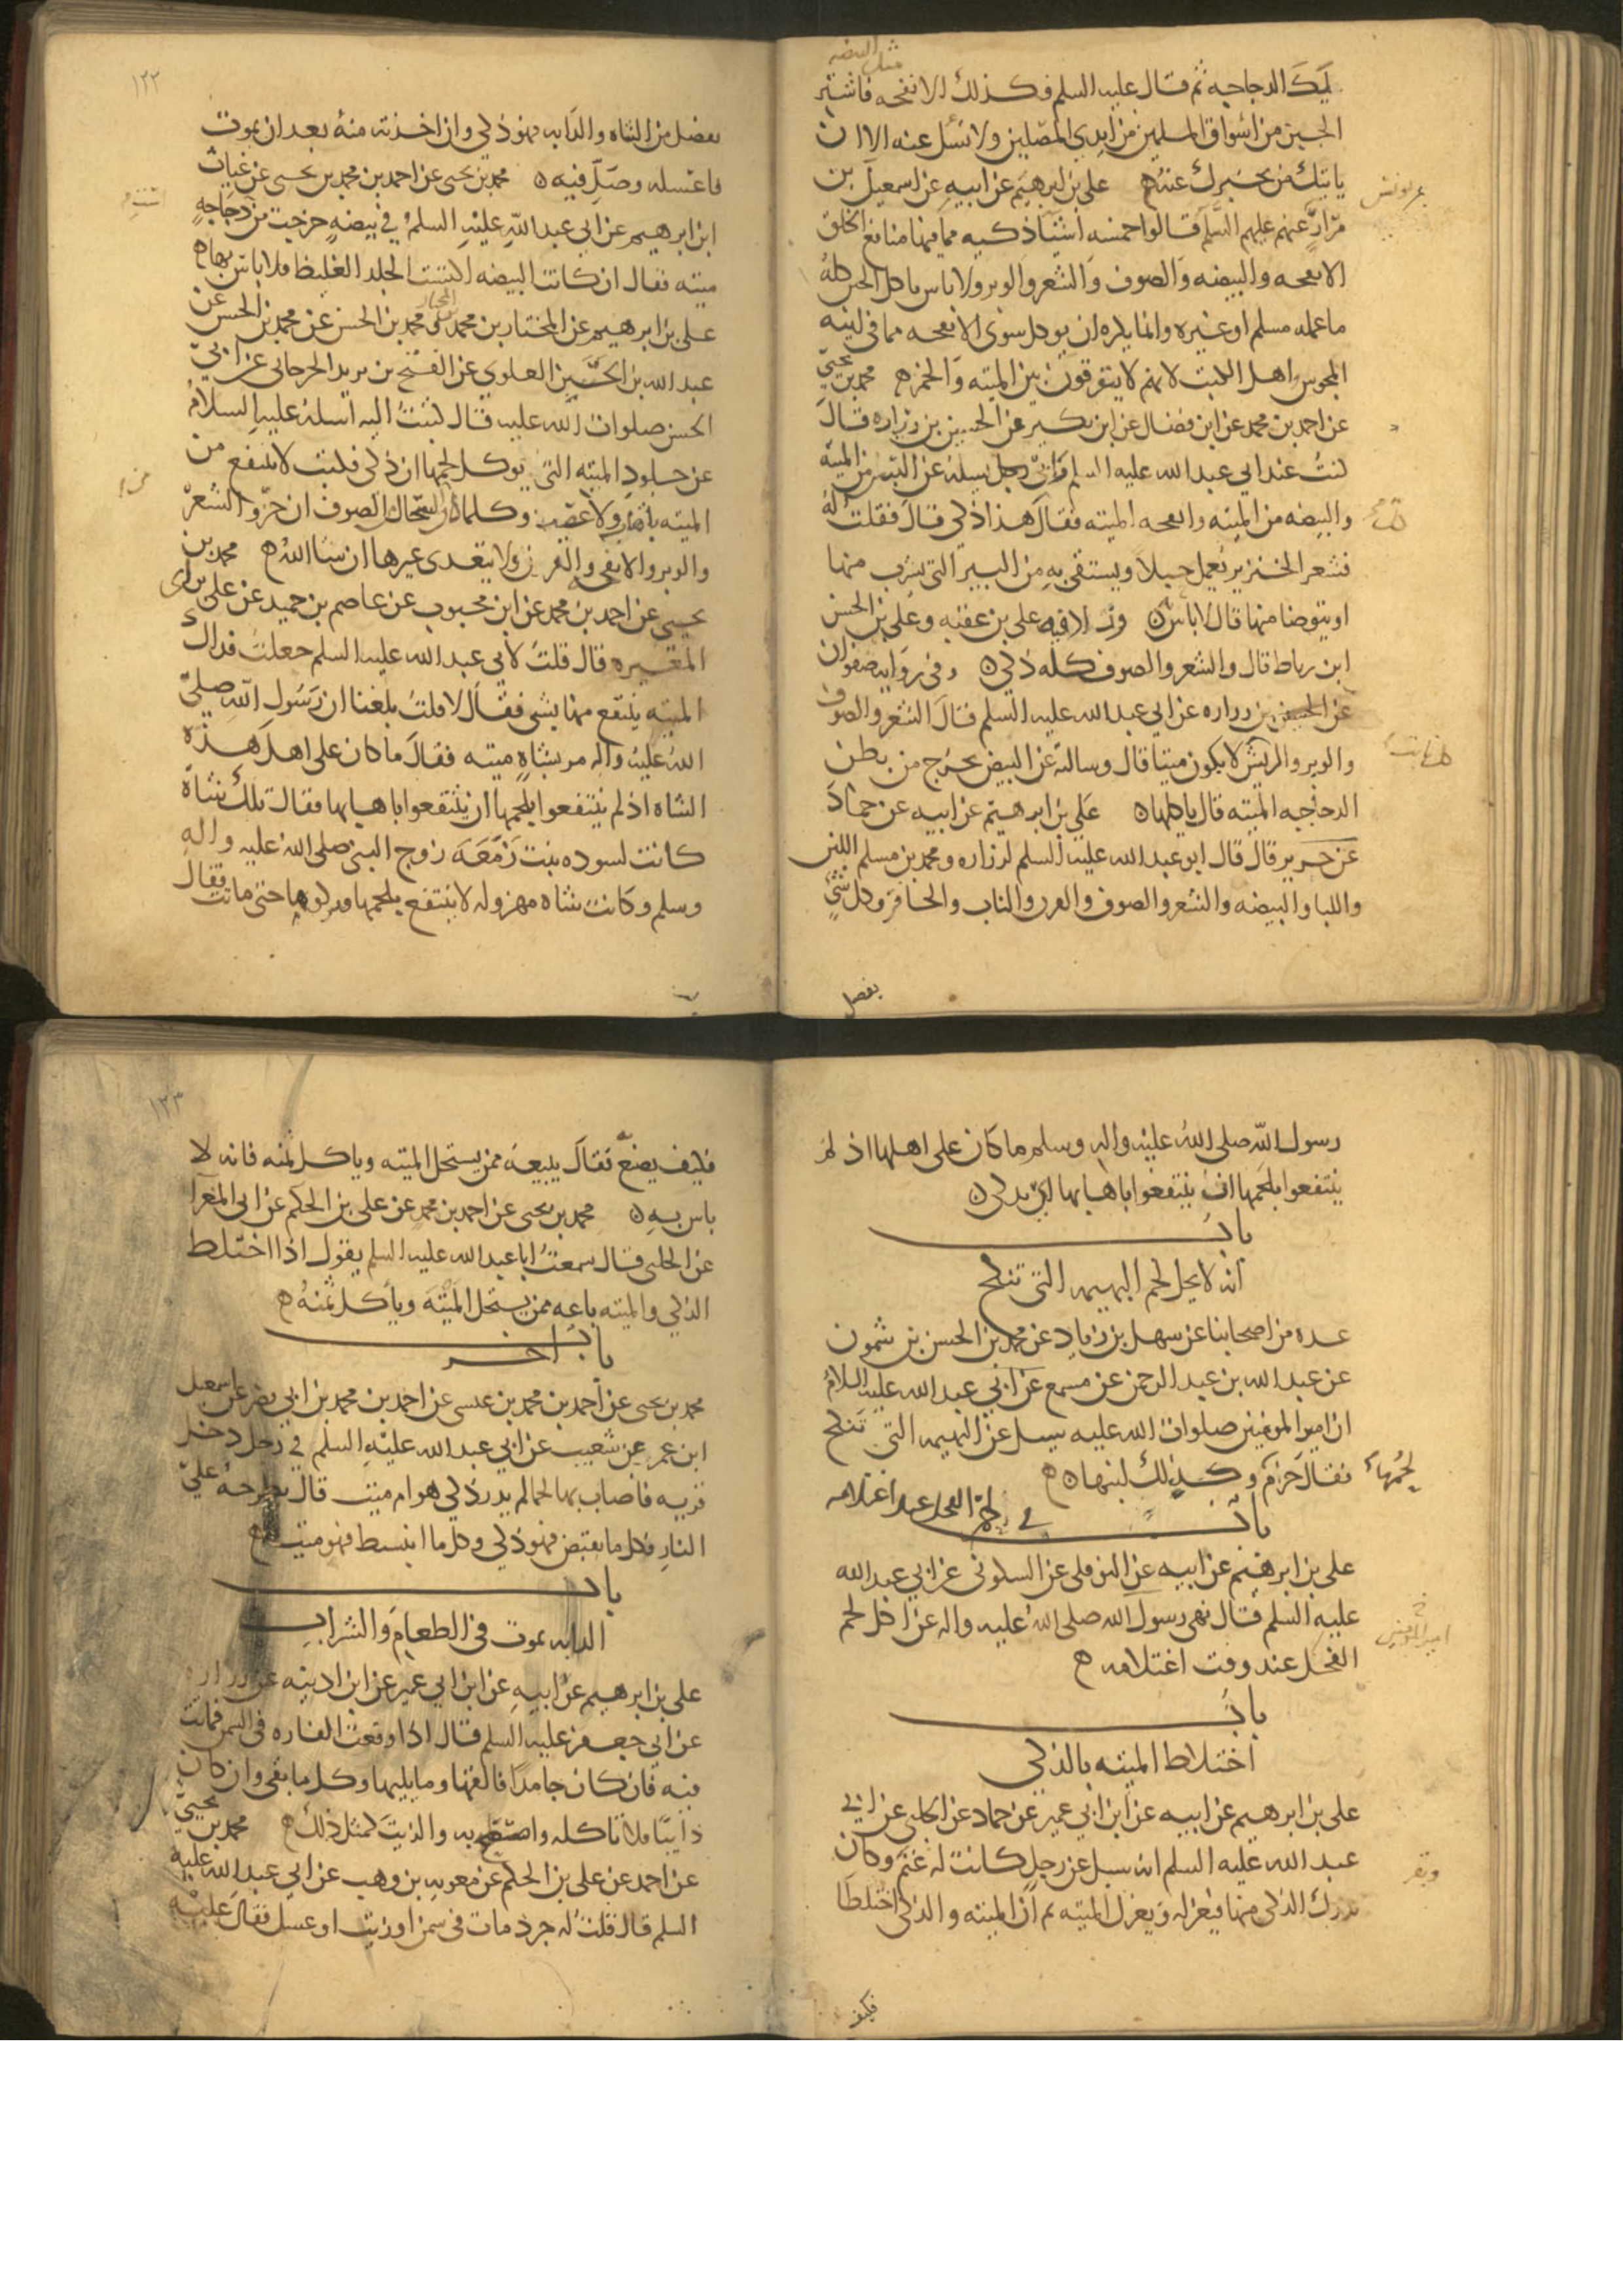 مثل البيضه
ليك الدجاجه ثم قال عليه السلم فكذلك الانفحه فاشتر
الجبن من اسواق المسلمين من ايدي المصلين ولا تسل عنه الا ان
ياتيك من يخبرك عنه ه علي بن ابرهيم عن ابيه عن اسمعيل بن
عن يونس
مرار عنهم عليهم السلم قالوا خمسه اشيا ذكيه مما فيها منافع الخلق
الانفحه والبيضه والصوف والشعر والوبر ولا باس باكل الجبن كله
ما عمله مسلم او غيره وانما يكره ان يوكل سوى الانفحه مما في انيه
المجوس واهل الكتب لانهم لا يتوقون بين الميته والخمر ه محمد بن يحيى
عن احمد بن محمد عن ابن فضال عن ابن بكير عن الحسين بن زراره قال
كنت عند ابي عبد الله عليه السلم وابي رجل يسله عن السن من الميته
والبيضه من الميته وانفحه الميته فقال كل هذا ذكي قال فقلت له
فشعر الخنزير يعمل حبلا ويستقى به من البير التي يشرب منها
او يتوضا منها قال لا باس ه وزاد فيه علي بن عقبه وعلي بن الحسن
ابن رباط قال والشعر والصوف كله ذكي ه وفي روايه صفوان
عن الحسين بن زراره عن ابي عبد الله عليه السلم قال الشعر والصوف
والوبر والريش لا يكون ميتا قال وسالته عن البيض يخرج من بطن
الدجاجه الميته قال ياكلها ه علي بن ابرهيم عن ابيه عن حماد
عن حريز قال قال ابو عبد الله عليه السلم لزراره ومحمد بن مسلم اللبن
واللبا والبيضه والشعر والصوف والقرن والناب والحافر وكل شي
يفصل
١٢٢
يفصل من الشاه والدابه فهو ذكي وان اخذته منه بعد ان يموت
فاغسله وصل فيه ه محمد بن يحيى عن احمد بن محمد بن يحيى عن غياث
ابن ابرهيم عن ابي عبد الله عليه السلم في بيضه خرجت من دجاجه
ميته فقال ان كانت البيضه اكتست الجلد الغليظ فلا باس بها ه
علي بن ابرهيم عن المختار بن محمد بن المختار ومحمد بن الحسن عن محمد بن الحسن عن
عبد الله بن الحسين العلوي عن الفتح بن يزيد الجرجاني عن ابي
الحسن صلوات الله عليه قال كتبت اليه اسله عليه السلام
عن جلود الميته التي يوكل لحمها ان ذكي فكتب لا ينتفع من
الميته باهاب ولا عصب وكلما كان السخال الصوف ان جز والشعر
والوبر والانفحه والقرن ولا يتعدى غيرها ان شا الله ه محمد بن
يحيى عن احمد بن محمد عن ابن محبوب عن عاصم بن حميد عن علي بن ابي
المغيره قال قلت لابي عبد الله عليه السلم جعلت فداك
الميته ينتفع منها بشي فقال لا قلت بلغنا ان رسول الله صلى
الله عليه واله مر بشاه ميته فقال ما كان على اهل هذه
الشاه اذ لم ينتفعوا بلحمها ان ينتفعوا باهابها فقال تلك شاه
كانت لسوده بنت زمعه زوج النبي صلى الله عليه واله
وسلم وكانت شاه مهزوله لا ينتفع بلحمها فتركوها حتى ماتت فقال
رسول الله صلى الله عليه واله وسلم ما كان على اهلها اذ لم
ينتفعوا بلحمها ان ينتفعوا باهابها اي تذكى ه
باب
انه لا يحل لحم البهيمه التي تنكح
عده من اصحابنا عن سهل بن زياد عن محمد بن الحسن بن شمون
عن عبد الله بن عبد الرحمن عن مسمع عن ابي عبد الله عليه السلام
ان امير المومنين صلوات الله عليه سيل عن البهيمه التي تنكح
فقال حرام لحمها وكذلك لبنها ه
باب
في لحم الفحل عند اغتلامه
علي بن ابرهيم عن ابيه عن النوفلي عن السكوني عن ابي عبد الله
عليه السلم قال نهى رسول الله صلى الله عليه واله عن اكل لحم
امير المومنين
الفحل عند وقت اغتلامه ه
باب
اختلاط الميته بالذكي
علي بن ابرهيم عن ابيه عن ابن ابي عمير عن حماد عن الحلبي عن ابي
عبد الله عليه السلم انه سيل عن رجل كانت له غنم وكان
وبقر
يدرك الذكي منها فيعزله ويعزل الميته ثم ان الميته والذكي اختلطا
فكيف
١٢٣
فكيف يصنع به فقال يبيعه ممن يستحل الميته وياكل ثمنه فانه لا
باس به ه محمد بن يحيى عن احمد بن محمد عن علي بن الحكم عن ابي المغرا
عن الحلبي قال سمعت ابا عبد الله عليه السلم يقول اذا اختلط
الذكي والميته باعه ممن يستحل الميته وياكل ثمنه ه
باب اخر
محمد بن يحيى عن احمد بن محمد بن عيسى عن احمد بن محمد بن ابي نصر عن اسمعيل
ابن عمر عن شعيب عن ابي عبد الله عليه السلم في رجل دخل
قريه فاصاب بها لحما لم يدر ذكي هو ام ميت قال يطرحه على
النار فكل ما يقبض فهو ذكي وكل ما انبسط فهو ميت ه
باب
الدابه تموت في الطعام والشراب
علي بن ابرهيم عن ابيه عن ابن ابي عمير عن ابن اذينه عن زراره
عن ابي جعفر عليه السلم قال اذا وقعت الفاره في السمن فماتت
فيه فان كان جامدا فالقها وما يليها وكل ما بقي وان كان
ذايبا فلا تاكله واستصبح به والزيت كمثل ذلك ه محمد بن يحيى
عن احمد عن علي بن الحكم عن معويه بن وهب عن ابي عبد الله عليه
السلم قال قلت له جرذ مات في سمن او زيت او عسل فقال عليه